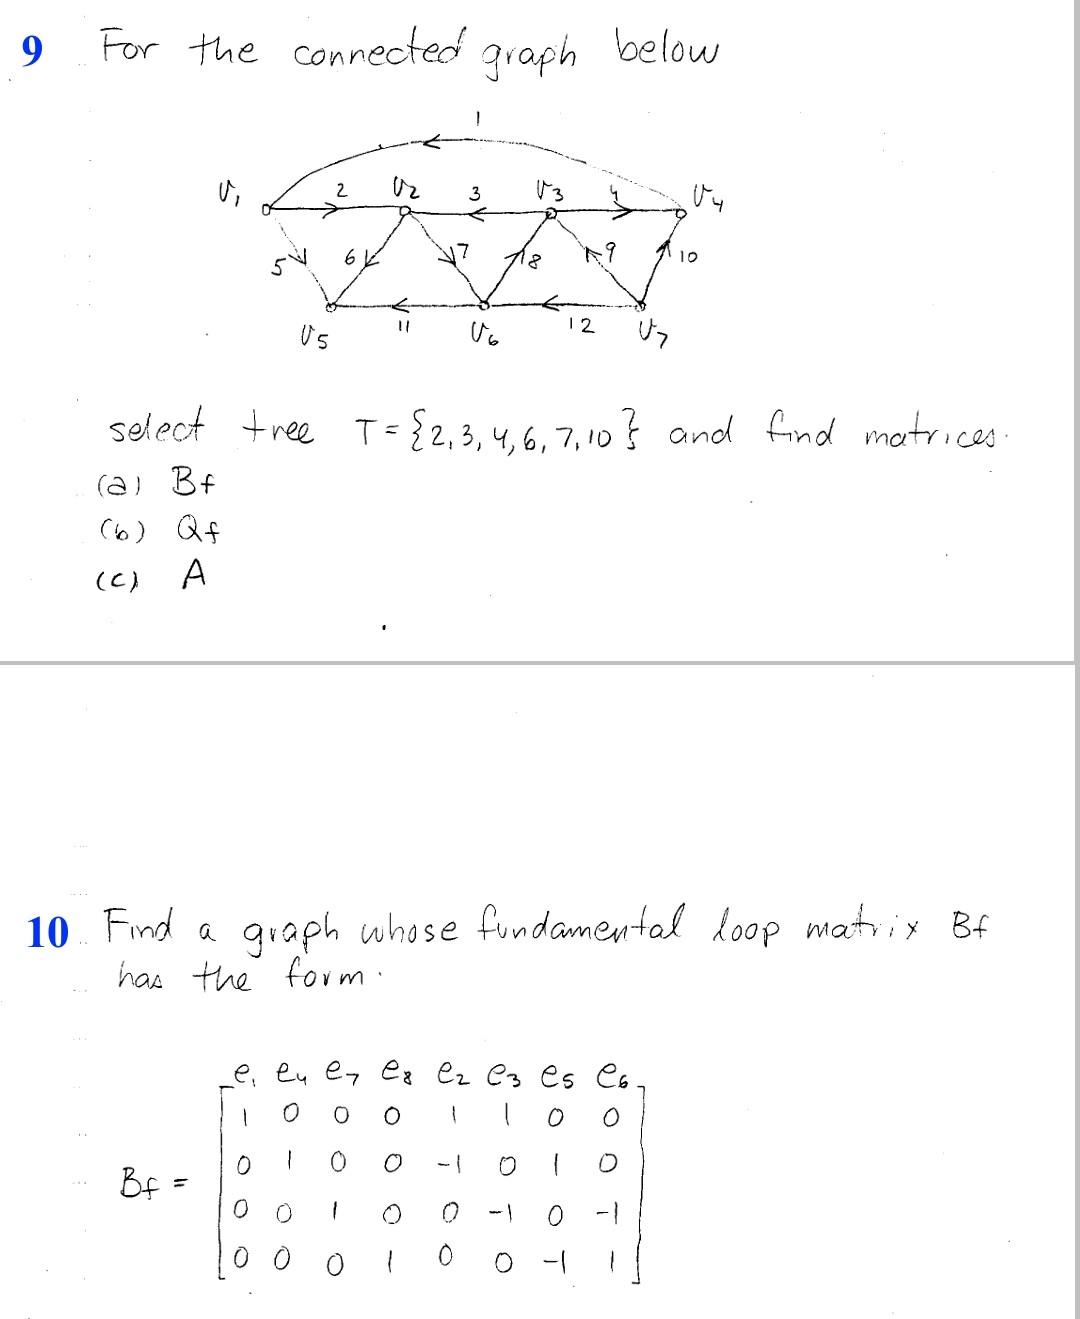 9 For the connected graph below
1
v₁ 2 v₂ 3 v₃ 4 v₄
5 6 7 8 9 10
v₅ 11 v₆ 12 v₇
select tree T = {2, 3, 4, 6, 7, 10} and find matrices.
(a) Bf
(b) Qf
(c) A
10 Find a graph whose fundamental loop matrix Bf
has the form.
e₁ e₄ e₇ e₈ e₂ e₃ e₅ e₆
1 0 0 0 1 1 0 0
0 1 0 0 -1 0 1 0
Bf =
0 0 1 0 0 -1 0 -1
0 0 0 1 0 0 -1 1